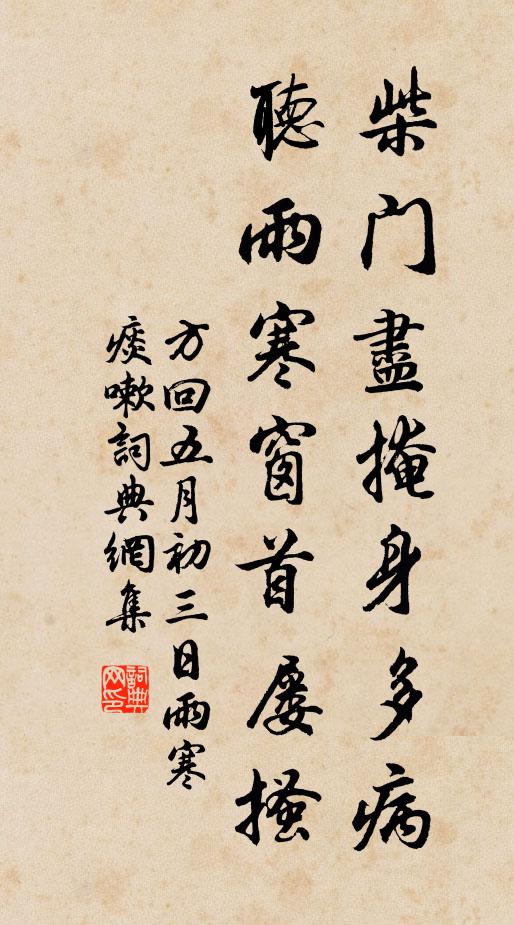 柴门盡掩身多病
聽雨寒窗首屢搔
方回五月初三日雨寒
痰嗽詞典網集
詞典网印